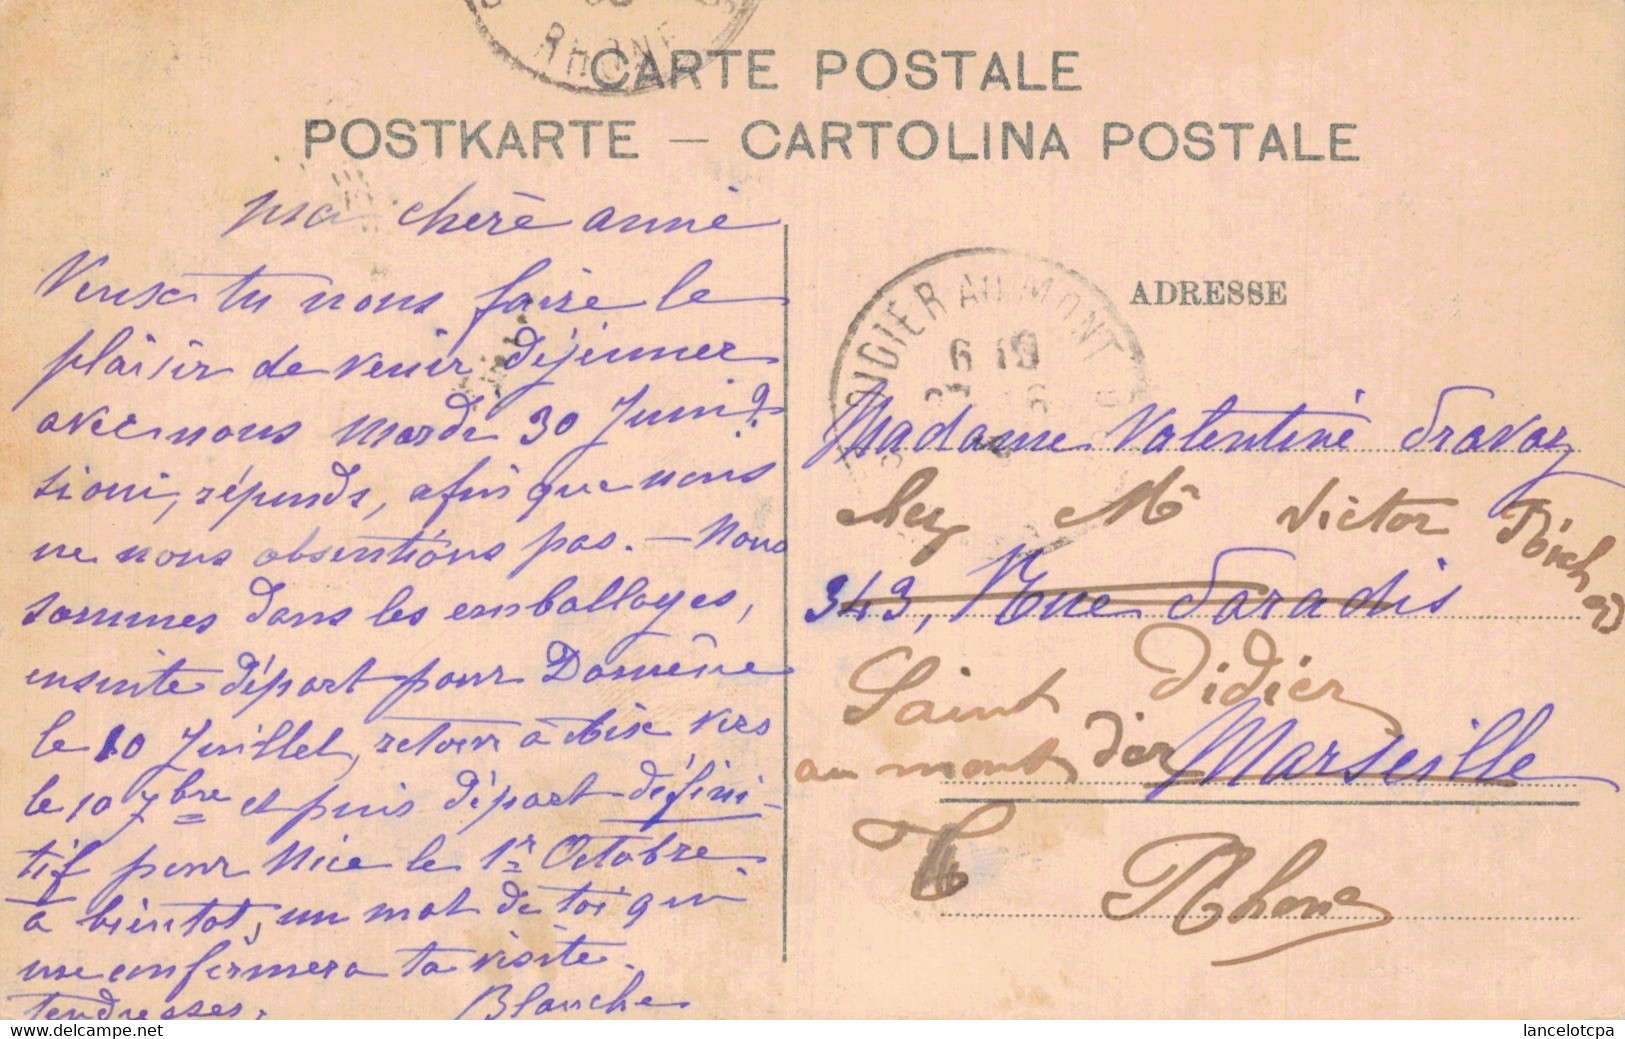 CARTE POSTALE
POSTKARTE — CARTOLINA POSTALE
RHONE
ma chère amie
Veux-tu nous faire le
plaisir de venir déjeuner
avec nous mardi 30 Juin?
si oui, réponds, afin que nous
ne nous absentions pas. — Nous
sommes dans les emballages,
ensuite départ pour Domène
le 10 Juillet, retour à Aix vers
le 10 7bre et puis départ défini-
tif pour Nice le 1r Octobre
à bientôt, un mot de toi qui
me confirmera ta visite.
tendresses. Blanche
ADRESSE
DIDIER AU MONT
6 19
Madame Valentine Travaz
chez Mr Victor
343, Rue Paradis
Saint Didier
au mont d'or Marseille
Rhone
lancelotcpa
Delcampe.net